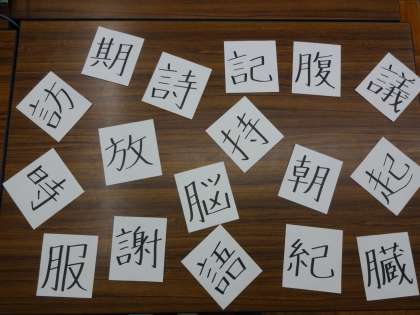 期
詩
記
腹
議
訪
放
持
時
脳
朝
起
服
謝
語
紀
臓